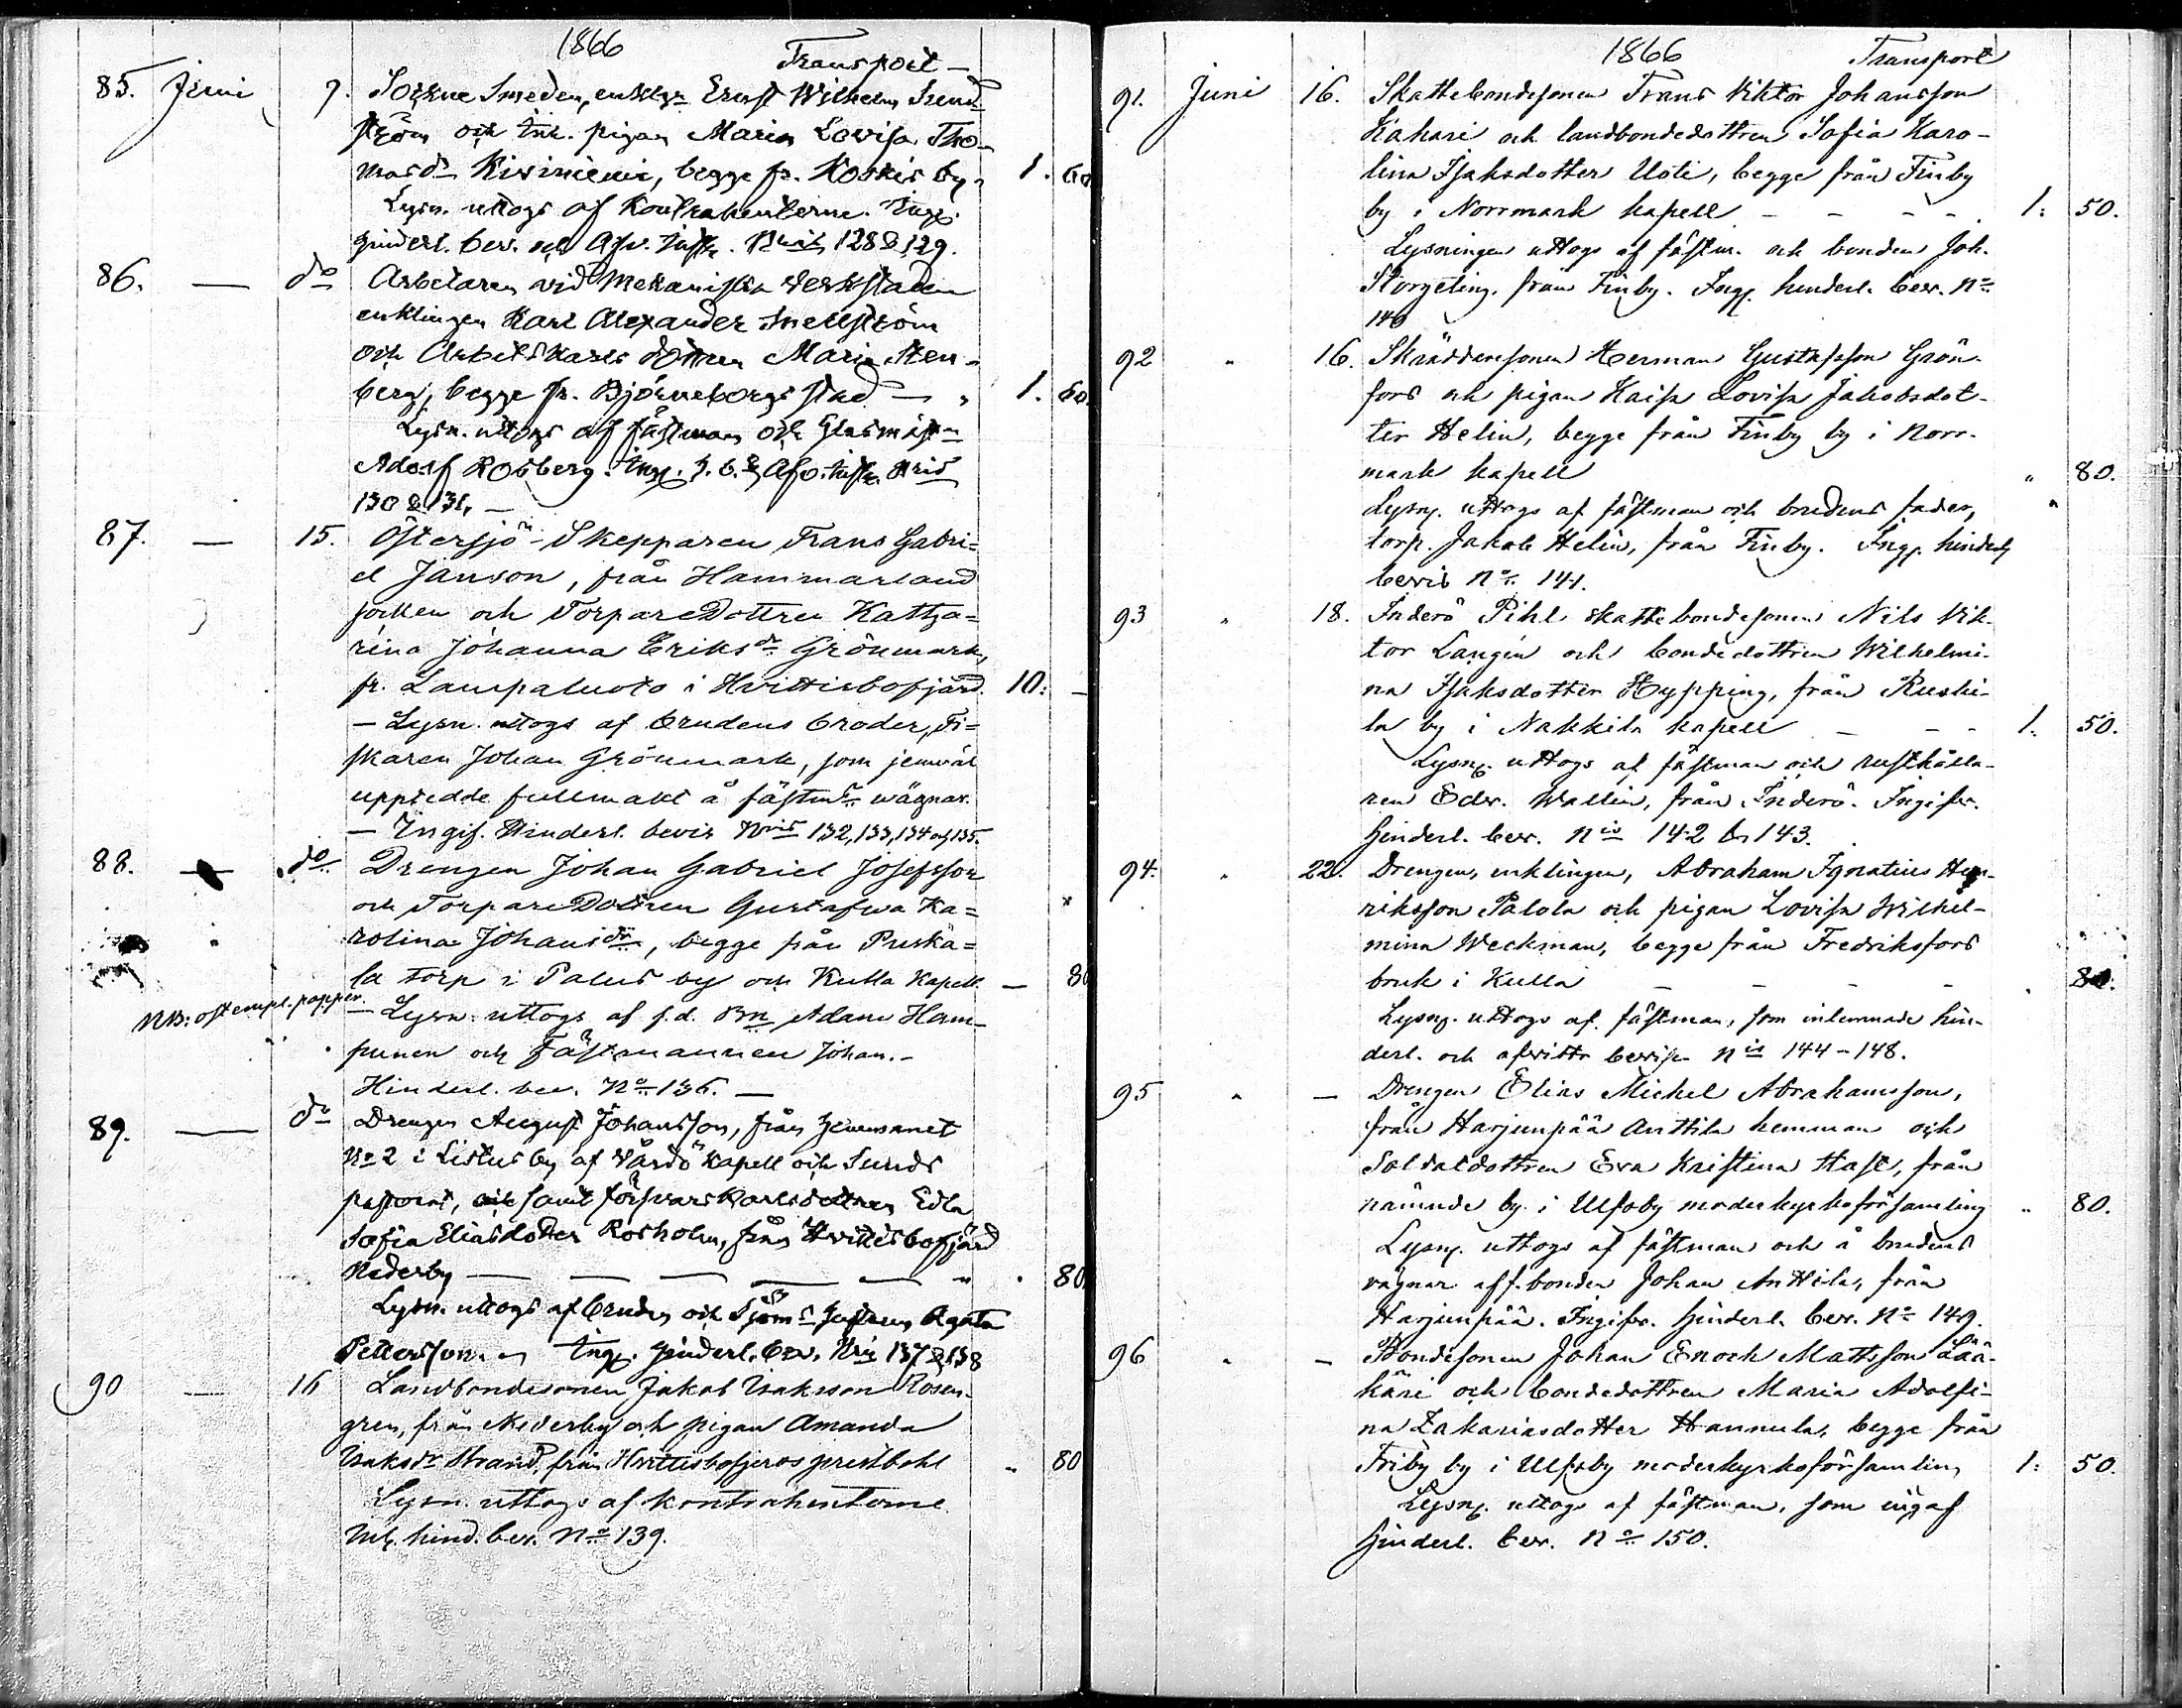 1866 Transport
85. Juni 7. Sockne Smeden, enkl. Ernst Wilhelm
ström och ink. pigan Maria Lovisa Tho-
masdr Kiviniemi, begge fr. Koskis by, 1. 60
Lysn. uttogs af Kontrahenterne. Ingg.
hinderl. bev. och Afv. Nris 128 & 129.
86. — do Arbetaren vid Mekaniska Verkstaden
enklingen Karl Alexander Snellström
och Arbetskarls dottren Maria Sten-
berg, begge fr. Björneborgs stad — " 1. 60.
Lysn. uttogs af fästman och Glasmäst.
Adolf Rosberg. Ingg. h. b. & Afv. Nris
130 & 131. —
87. — 15. Östersjö-Skepparen Frans Gabri=
el Janson, från Hammarland
socken och TorpareDottren Katha=
rina Johanna Eriksdr Grönmark,
fr. Lampaluoto i Hvittisbofjärd. 10: —
— Lysn. uttogs af brudens broder, Fi=
skaren Johan Grönmark, som jemväl
uppredde fullmakt å fästms wägnar.
— Ingif. Hinderl. bevis Nris 132, 133, 134 och 135.
88. — do. Drengen Johan Gabriel Josefsson
och TorpareDottren Gustafva Ka=
rolina Johansdr, begge från Puskä=
la torp i Palus by och Kulla Kapell. — 80
NB: ostempl. papper. — Lysn. uttogs af f.d. Bn Adam Ham-
punen och Fästmannen Johan. —
Hinderl. bev. No 136. —
89. — do Drengen August Johansson, från hemmanet
No 2 i Listersby af Vårdö Kapell och Sunds
pastorat, samt försvarskarlsdottren Edla
Sofia Eliasdotter Rosholm, från Hvittisbofjärd
Nederby — — — — — " 80
Lysn. uttogs af bruden och Sjöms hustrun Agata
Pettersson. — Ingg. hinderl. bev. Nris 137 & 138
90 — 16 Landbondesonen Jakob Isaksson Rosen-
gren, från Nederby och pigan Amanda
Isaksdr Strand, från Hvittisbofjerds prestbohl " 80
Lysn. uttogs af kontrahenterne
hind. bev. No 139.
1866 Transport
91. Juni 16. Skattebondesonen Frans Viktor Johansson
Kahari och landbondedottren Sofia Karo-
lina Isaksdotter Uoti, begge från Finby
by i Norrmark kapell - - - - 1: 50.
Lysningen uttogs af fästm. och bonden Joh.
Storgeling, från Finby. Ingg. hinderl. bev. No
140
92 " 16. Skräddaresonen Herman Gustafsson Grön-
fors och pigan Kaisa Lovisa Jakobsdot-
ter Helin, begge från Finby by i Norr-
mark kapell " 80.
Lysng. uttogs af fästman och brudens fader,
torp. Jakob Helin, från Finby. Ingg. hinderl.
bevis No 141.
93 " 18. Inderö Pihl skattebondesonen Nils Vik-
tor Langén och bondedottren Wilhelmi-
na Isaksdotter Hypping, från Ruski-
la by i Nakkila kapell - - - 1: 50.
Lysng. uttogs af fästman och rusthålla-
ren Edv. Wallin, från Inderö. Ingifv.
hinderl. bev. Nis 142 & 143.
94. " 22. Drengen, enklingen, Abraham Ignatius Hen-
riksson Palola och pigan Lovisa Wilhel-
mina Weckman, begge från Fredriksfors
bruk i Kulla - - - - " 80.
Lysng. uttogs af fästman, som inlemnade hin-
derl. och afvittr. bevis Nis 144-148.
95 " — Drengen Elias Mickel Abrahamsson,
från Harjunpää Anttila hemman och
Soldatdottren Eva Kristina Hast, från
nämnde by i Ulfsby moderkyrkoförsamling " 80.
Lysng. uttogs af fästman och å brudens
vägnar af f. bonden Johan Anttila, från
Harjunpää. Ingifv. hinderl. bev. No 149.
96 " — Bondesonen Johan Enoch Mattsson Lää-
käri och bondedottren Maria Adolfi-
na Zakariasdotter Hannula, begge från
Friby by i Ulfsby moderkyrkoförsamling 1: 50.
Lysng. uttogs af fästman, som ingaf
hinderl. bev. No 150.